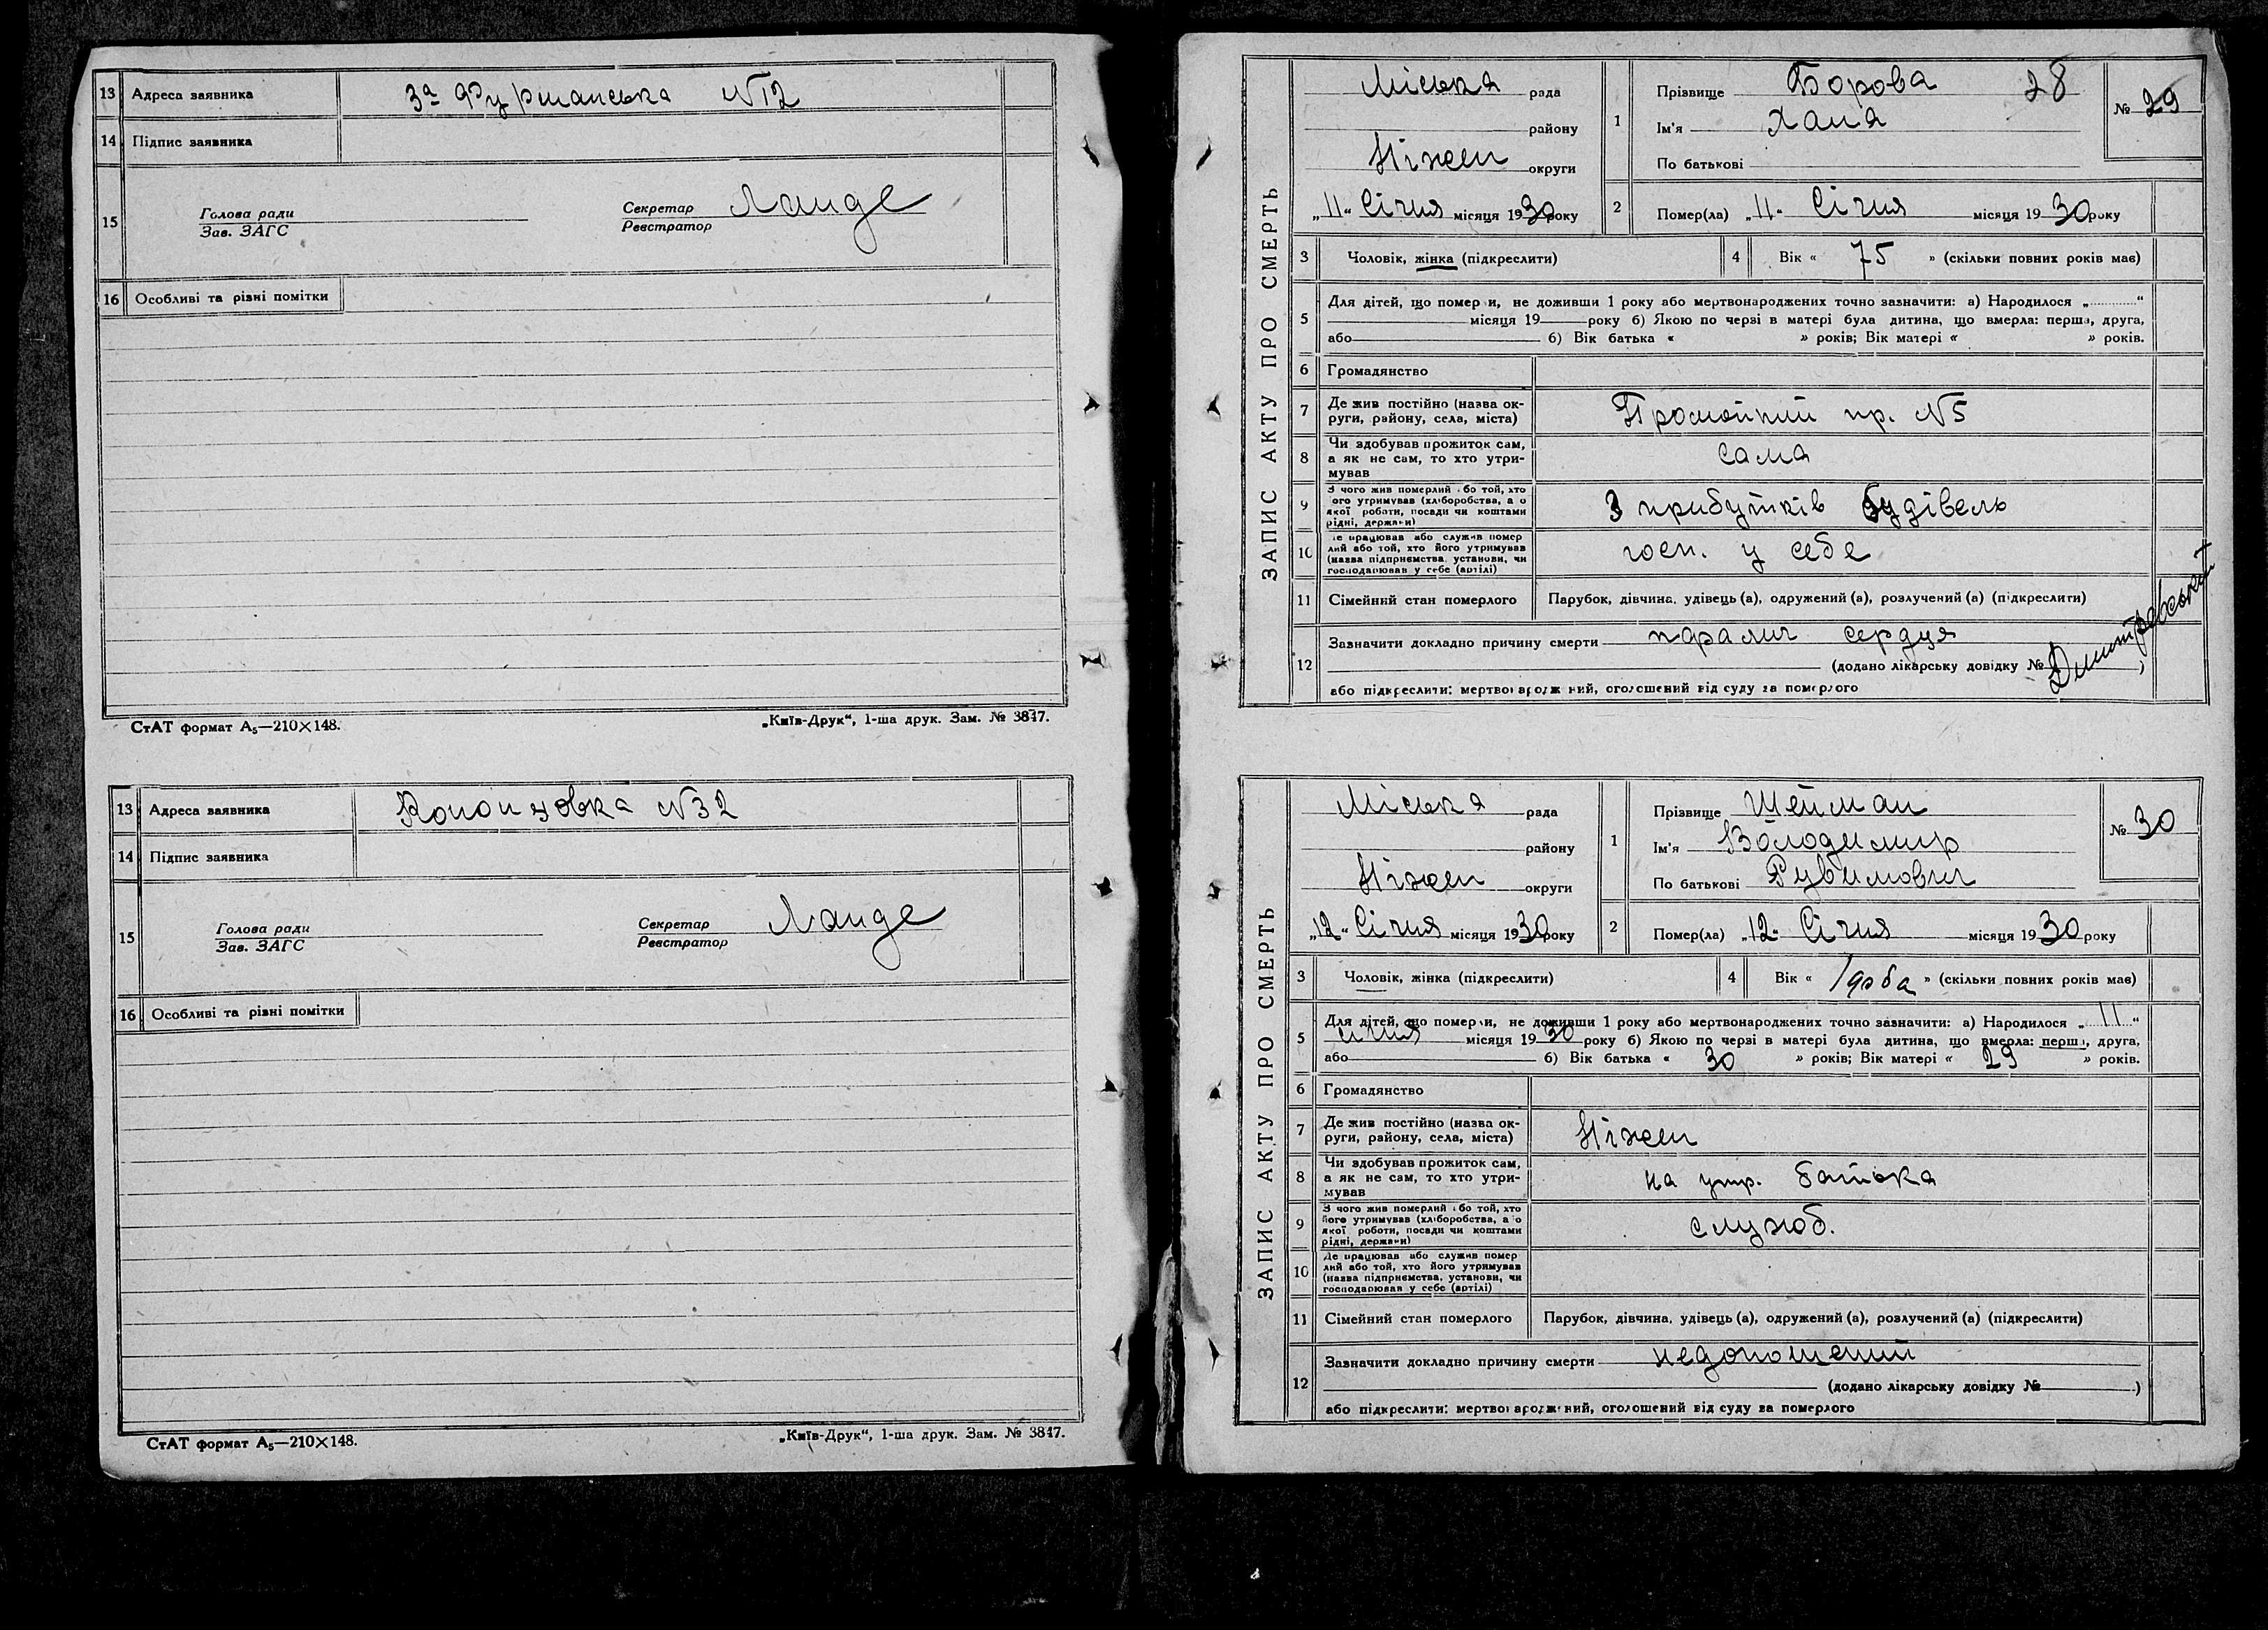 13 Адреса заявника 3а Фурманська №12
14 Підпис заявника
15 Голова ради
Зав. ЗАГС
Секретар
Реєстратор
Ланде
16 Особливі та різні помітки
СтАТ формат А₅—210×148.
„Київ-Друк“, 1-ша друк. Зам. № 3847.
13 Адреса заявника №32
14 Підпис заявника
15 Голова ради
Зав. ЗАГС
Секретар
Реєстратор
Ланде
16 Особливі та різні помітки
СтАТ формат А₅—210×148.
„Київ-Друк“, 1-ша друк. Зам. № 3847.
ЗАПИС АКТУ ПРО СМЕРТЬ
Міська рада
району
Ніжен округи
„11“ Січня місяця 1930 року
1 Прізвище Борова 28
№ 29
Ім'я Хана
По батькові
2 Помер(ла) „11“ Січня місяця 1930 року
3 Чоловік, жінка (підкреслити)
4 Вік « 75 » (скільки повних років має)
5 Для дітей, що померли, не доживши 1 року або мертвонароджених точно зазначити: а) Народилося „ “
місяця 19 року б) Якою по черзі в матері була дитина, що вмерла: перша, друга,
або б) Вік батька « » років; Вік матері « » років.
6 Громадянство
7 Де жив постійно (назва ок-
руги, району, села, міста)
пр. №5
8 Чи здобував прожиток сам,
а як не сам, то хто утри-
мував
сама
9 З чого жив померлий або той, хто
його утримував (хліборобства, а о
якої роботи, посади чи коштами
рідні, держави)
З прибутків будівель
10 Де працював або служив помер
лий або той, хто його утримував
(назва підприємства, установи, чи
господарював у себе (артілі)
госп. у себе
11 Сімейний стан померлого Парубок, дівчина, удівець (а), одружений (а), розлучений (а) (підкреслити)
12 Зазначити докладно причину смерти параліч сердця
(додано лікарську довідку № )
або підкреслити: мертвонароджений, оголошений від суду за померлого
ЗАПИС АКТУ ПРО СМЕРТЬ
Міська рада
району
Ніжен округи
„12“ Січня місяця 1930 року
1 Прізвище Шейман
№ 30
Ім'я Володимир
По батькові Рувимович
2 Помер(ла) „12“ Січня місяця 1930 року
3 Чоловік, жінка (підкреслити)
4 Вік « 1 доба » (скільки повних років має)
5 Для дітей, що померли, не доживши 1 року або мертвонароджених точно зазначити: а) Народилося „ 11 “
січня місяця 1930 року б) Якою по черзі в матері була дитина, що вмерла: перша, друга,
або б) Вік батька « 30 » років; Вік матері « 29 » років.
6 Громадянство
7 Де жив постійно (назва ок-
руги, району, села, міста)
Ніжен
8 Чи здобував прожиток сам,
а як не сам, то хто утри-
мував
на утр. батька
9 З чого жив померлий або той, хто
його утримував (хліборобства, а о
якої роботи, посади чи коштами
рідні, держави)
служб.
10 Де працював або служив помер
лий або той, хто його утримував
(назва підприємства, установи, чи
господарював у себе (артілі)
11 Сімейний стан померлого Парубок, дівчина, удівець (а), одружений (а), розлучений (а) (підкреслити)
12 Зазначити докладно причину смерти недоношений
(додано лікарську довідку № )
або підкреслити: мертвонароджений, оголошений від суду за померлого